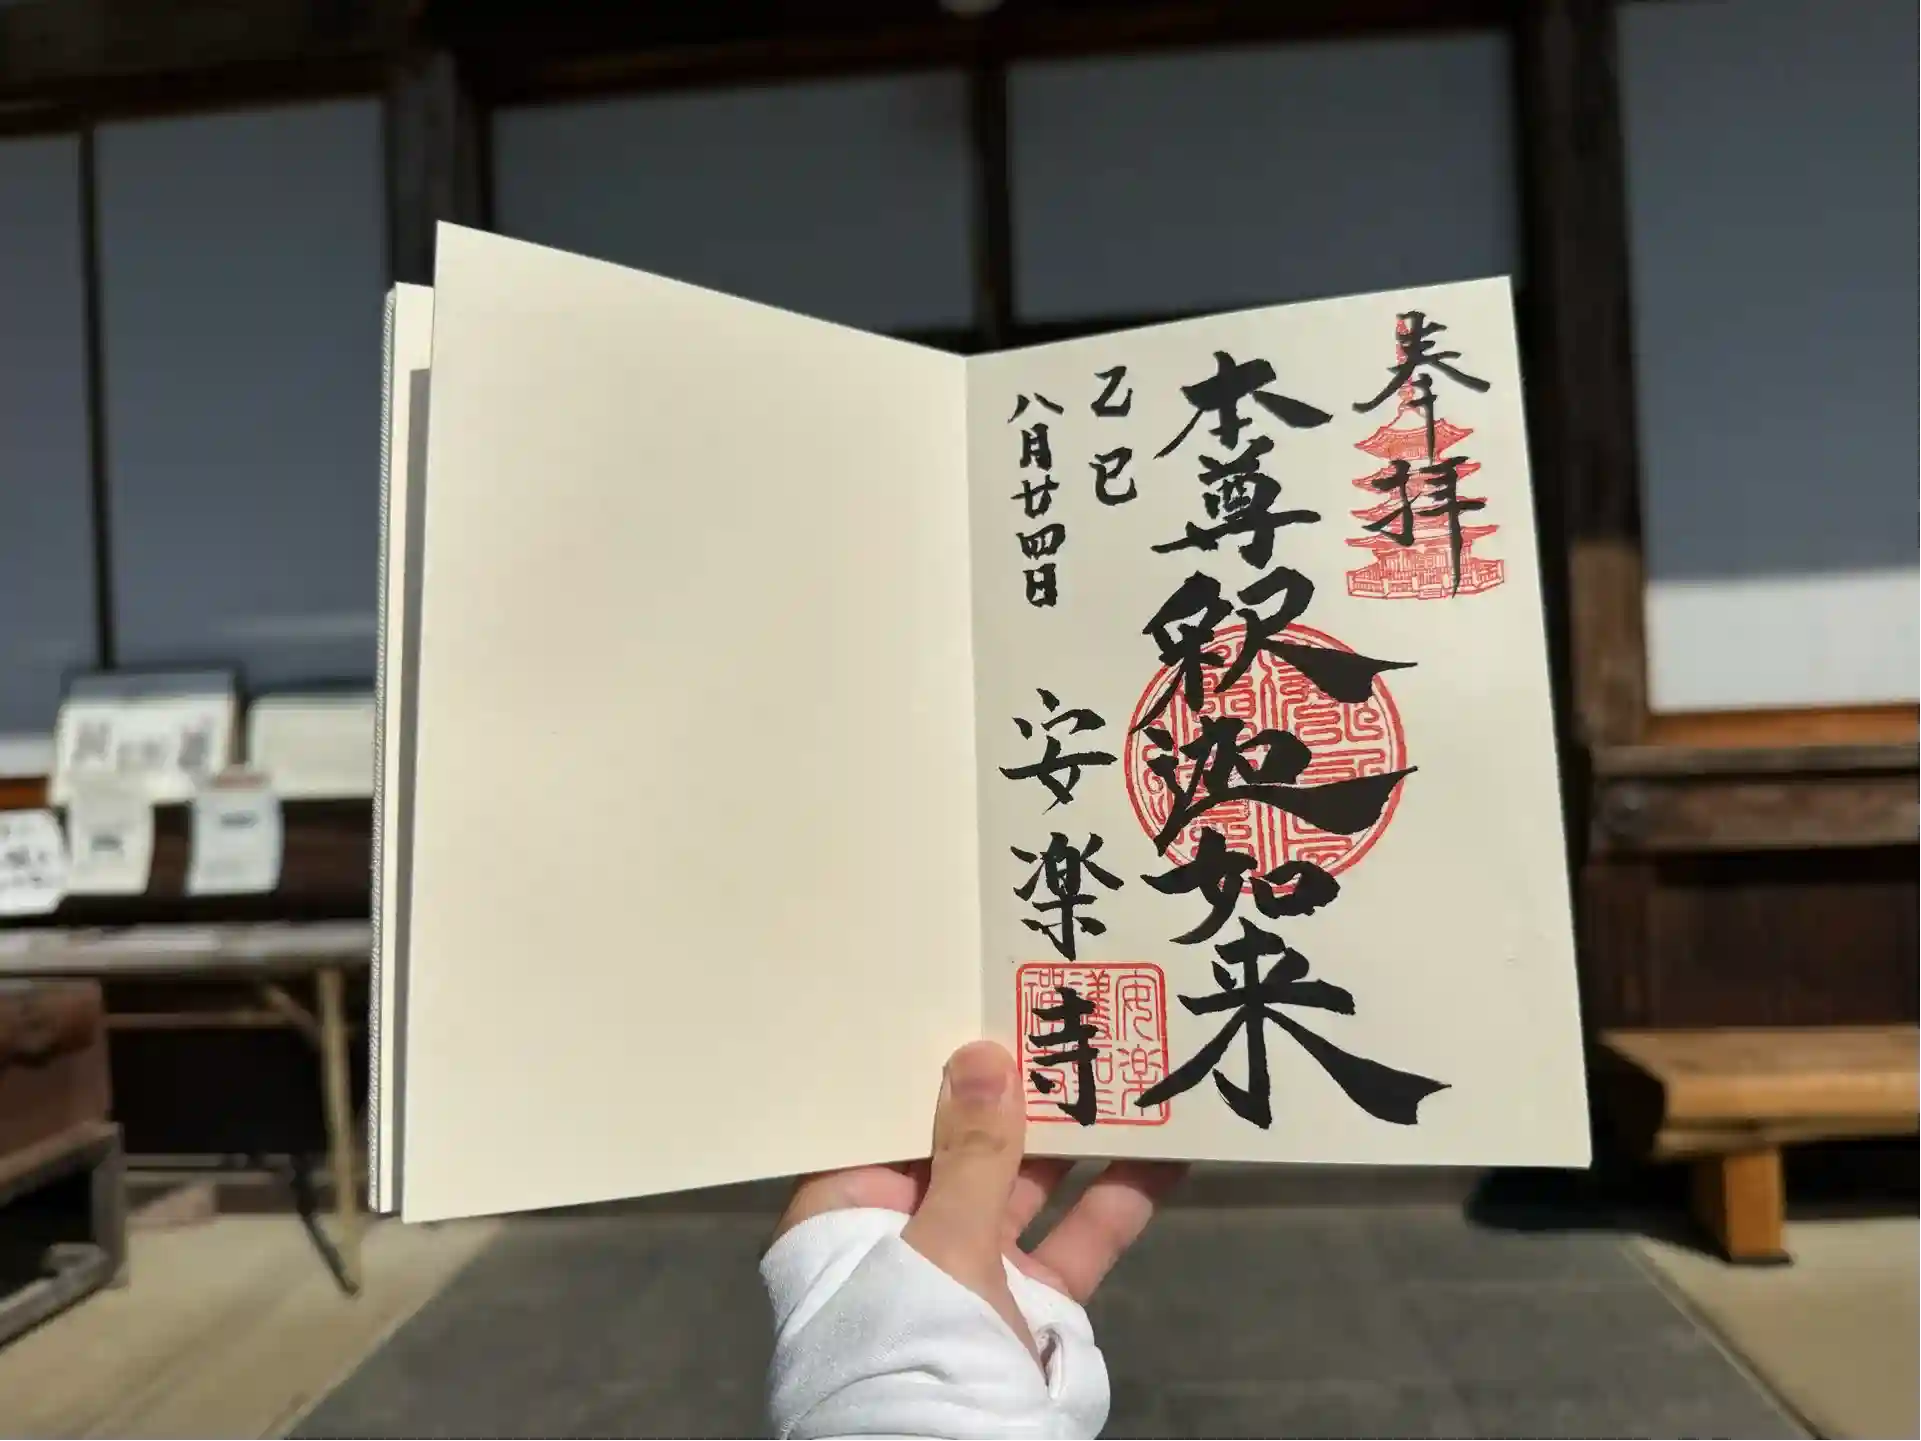 奉拝
本尊釈迦如来
乙巳
八月廿四日
安楽寺
安楽
護国
禅寺